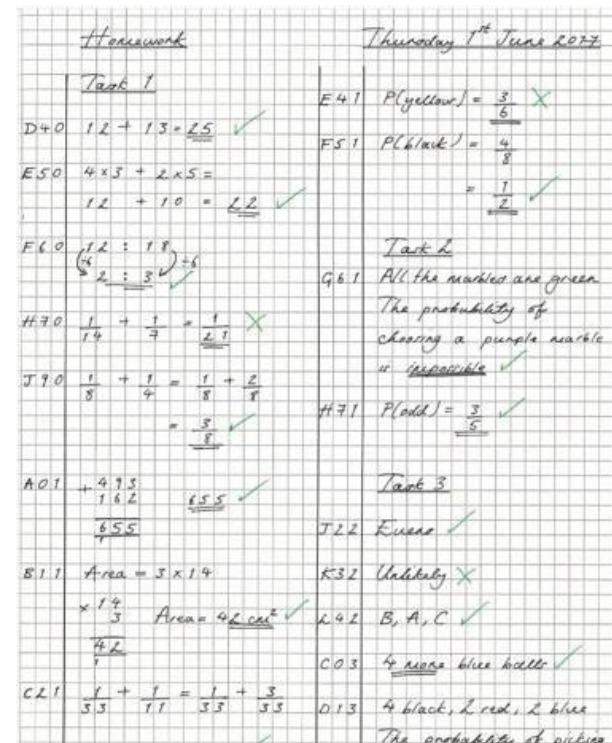 Homework
Thursday 1st June 2077
Task 1
D40 12 + 13 = 25
E50 4 × 3 + 2 × 5 =
12 + 10 = 22
F60 12 : 18
÷6 ÷6
2 : 3
H70 1/14 + 1/7 = 1/21
J90 1/8 + 1/4 = 1/8 + 2/8
= 3/8
A01 + 493
162 655
655
1
B11 Area = 3 × 14
× 14
3 Area = 42 cm²
42
1
C21 1/33 + 1/11 = 1/33 + 3/33
E41 P(yellow) = 3/6
F51 P(black) = 4/8
= 1/2
Task 2
G61 All the marbles are green
The probability of
choosing a purple marble
is impossible
H71 P(odd) = 3/5
Task 3
J22 Evens
K32 Unlikely
L42 B, A, C
C03 4 more blue balls
D13 4 black, 2 red, 2 blue
The probability of picking